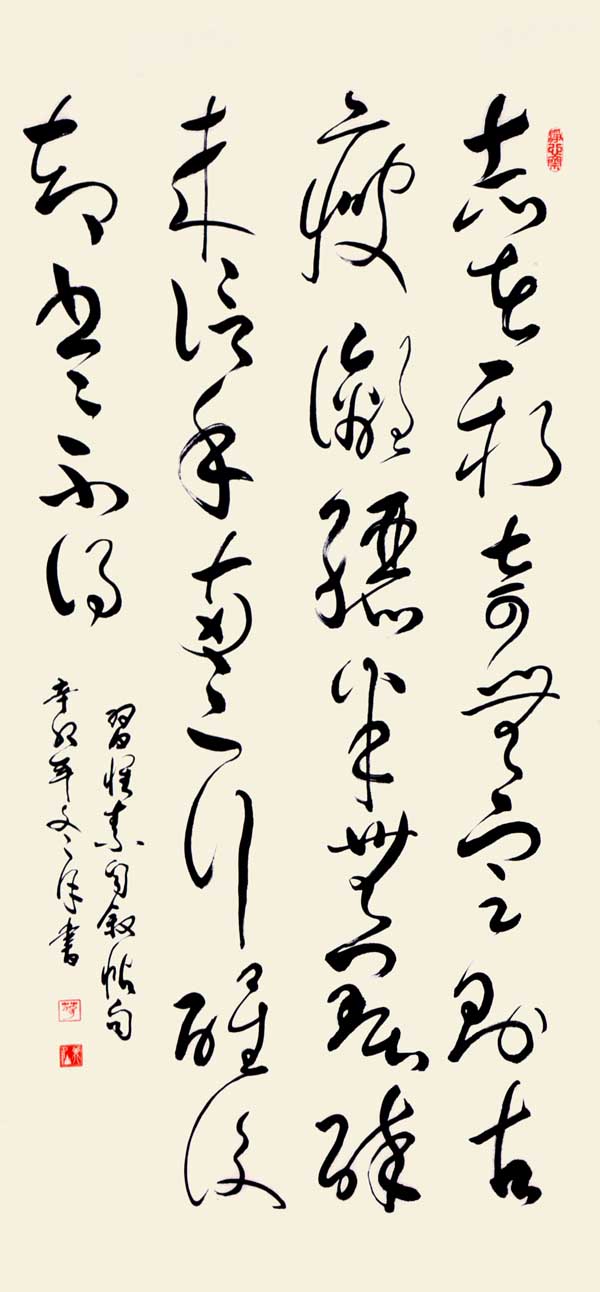 志在新奇無定則古
瘦灕驪半無墨醉
來信手兩三行醒後
却書〻不得
習懷素自叙帖句
辛卯年書